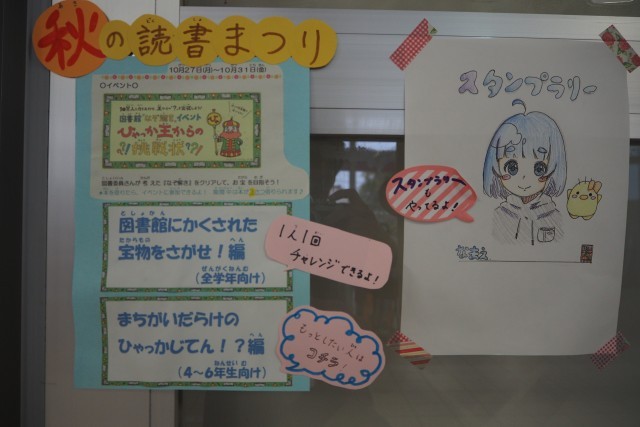 秋の読書まつり
10月27日(月)～10月31日(金)
○イベント○
図書館「なぞ解き」イベント
ひゃっか王からの
挑戦状
図書館にかくされた
宝物をさがせ！編
(全学年向け)
まちがいだらけの
ひゃっかじてん！？編
(4～6年生向け)
1人1回
チャレンジできるよ！
もっとしたい人は
コチラ！
スタンプラリー
スタンプラリー
も
やってるよ！